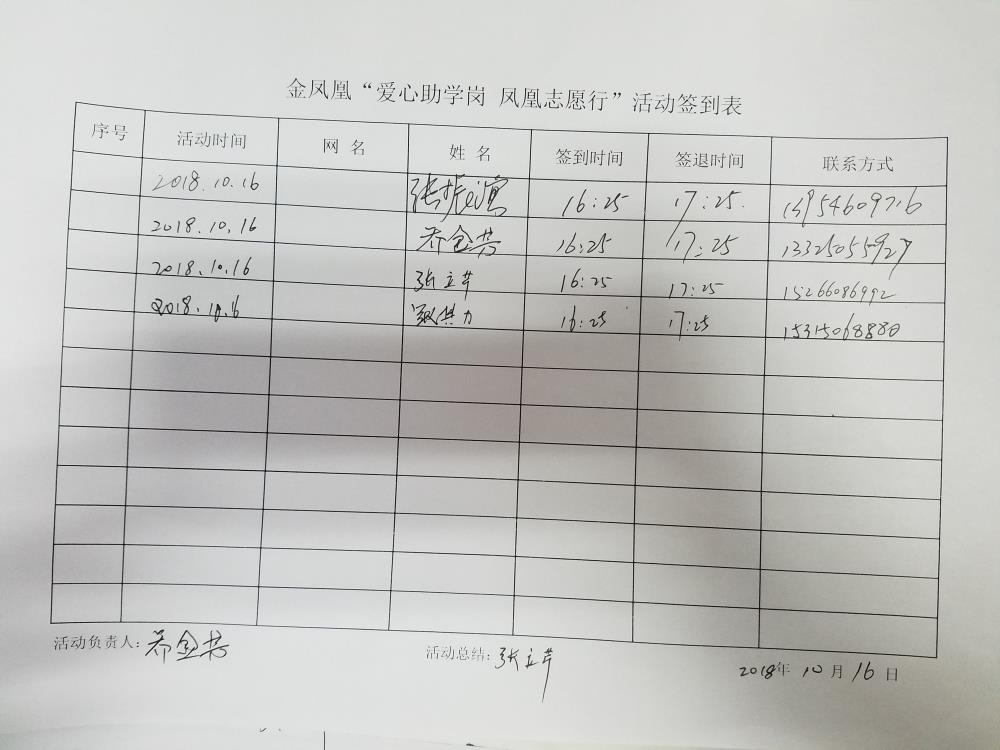 金凤凰“爱心助学岗 凤凰志愿行”活动签到表
序号 活动时间 网 名 姓 名 签到时间 签退时间 联系方式
2018.10.16 张振 16:25 17:25. 13954609716
2018.10.16 乔金芬 16:25 17:25 13325055927
2018.10.16 张立芹 16:25 17:25 15266086992
2018.10.6 16:25 17:25 15315068880
活动负责人: 乔金芬
活动总结: 张立芹
2018年 10 月 16 日